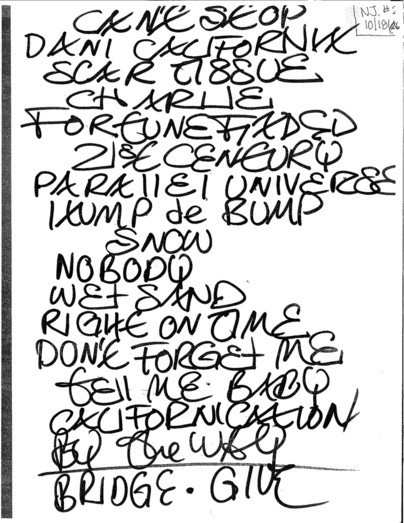 CAN'T STOP
N.J. #1
10/18/06
DANI CALIFORNIA
SCAR TISSUE
CHARLIE
FORTUNE FADED
21st CENTURY
PARALLEL UNIVERSE
HUMP de BUMP
SNOW
NOBODY
WET SAND
RIGHT ON TIME
DON'T FORGET ME
tell ME BABY
CALIFORNICATION
By the WAY
BRIDGE · GIVE